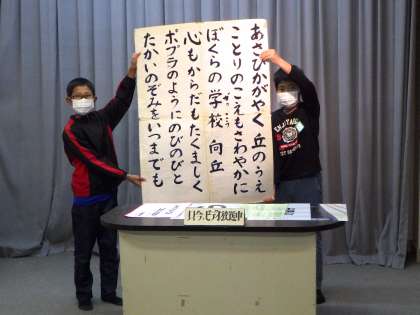 あさひかがやく 丘のうえ
ことりのこえもさわやかに
ぼくらの学校 向丘
がっこう
心もからだもたくましく
ポプラのようにのびのびと
たかいのぞみをいつまでも
只今、ビデオ放送中